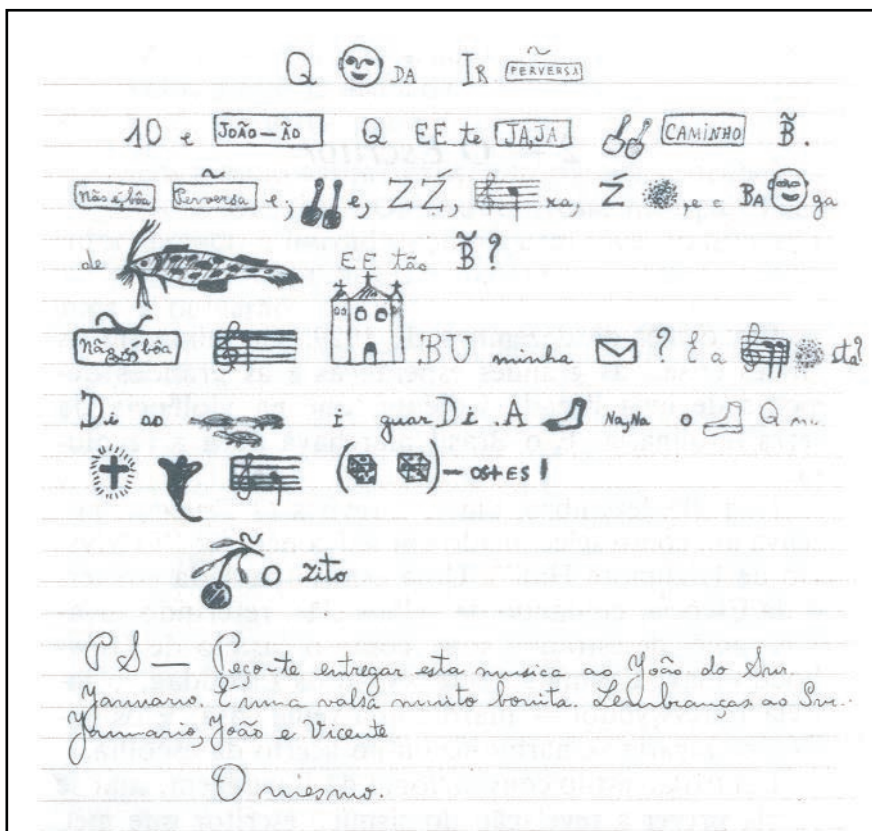 Q DA IR PERVERSA
10 e JOÃO-ÃO Q EE te JÁ,JÁ CAMINHO B̃.
Não é,bôa Perversa e, e, ZŹ, xa, Ź , e e BA ga
de EE tão B̃?
Não bôa , BU minha ? E a sta?
Dê as i guar Di . A Na,Na o Q m
( ) - os+es !
O zito
PS — Peço-te entregar esta musica ao João do Snr.
Januario. É uma valsa muito bonita. Lembranças ao Snr.
Januario, João e Vicente
O mesmo.